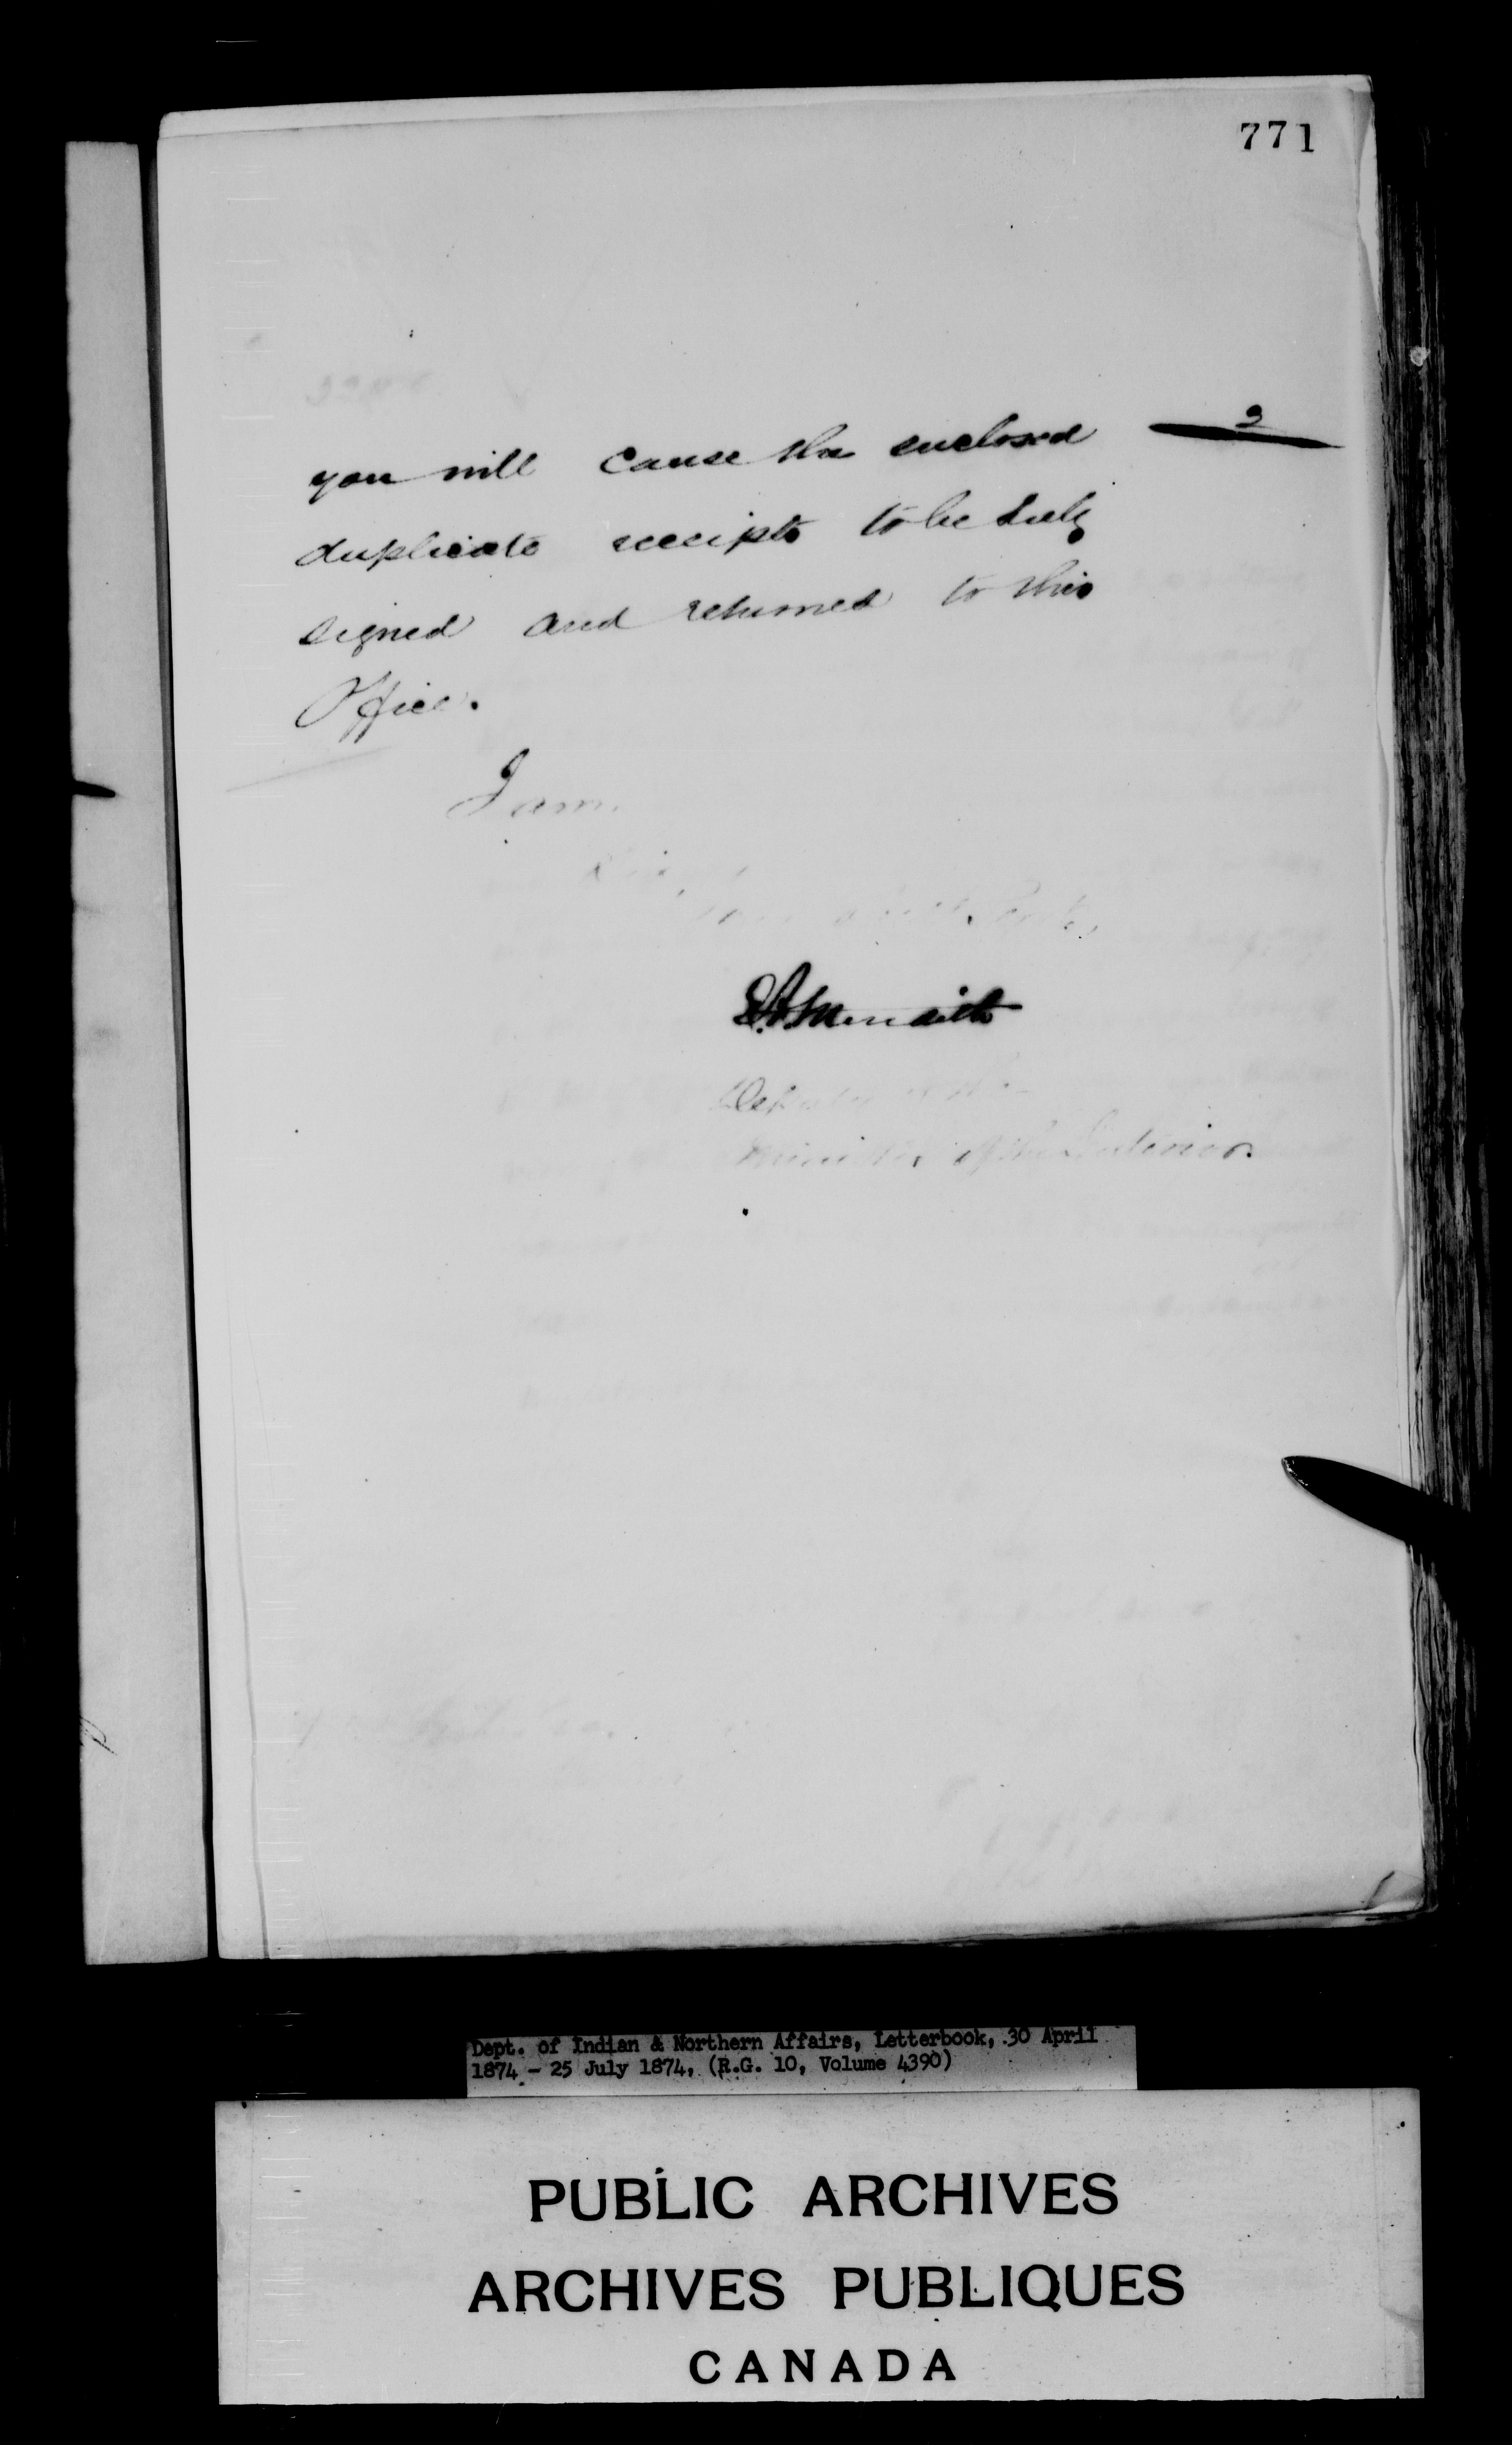 771
2
you will cause the enclosed
duplicate receipts to be duly
signed and returned to this
Office.
I am,
Sir,
Your obedt. Servt,
E.A. Meredith
Deputy of the
Minister of the Interior.
Dept. of Indian & Northern Affairs, Letterbook, 30 April
1874 - 25 July 1874, (R.G. 10, Volume 4390)
PUBLIC ARCHIVES
ARCHIVES PUBLIQUES
CANADA